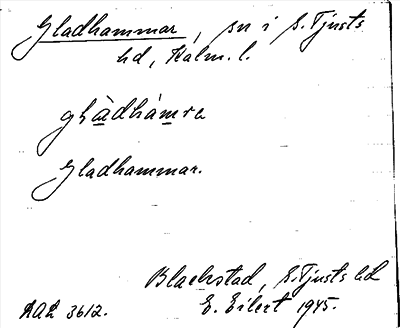 Gladhammar, sn i S. Tjusts
hd, Kalm. l.
glàdhám
Gladhammar.
Blackstad, S. Tjusts hd
E. Eilert 1945.
3612.